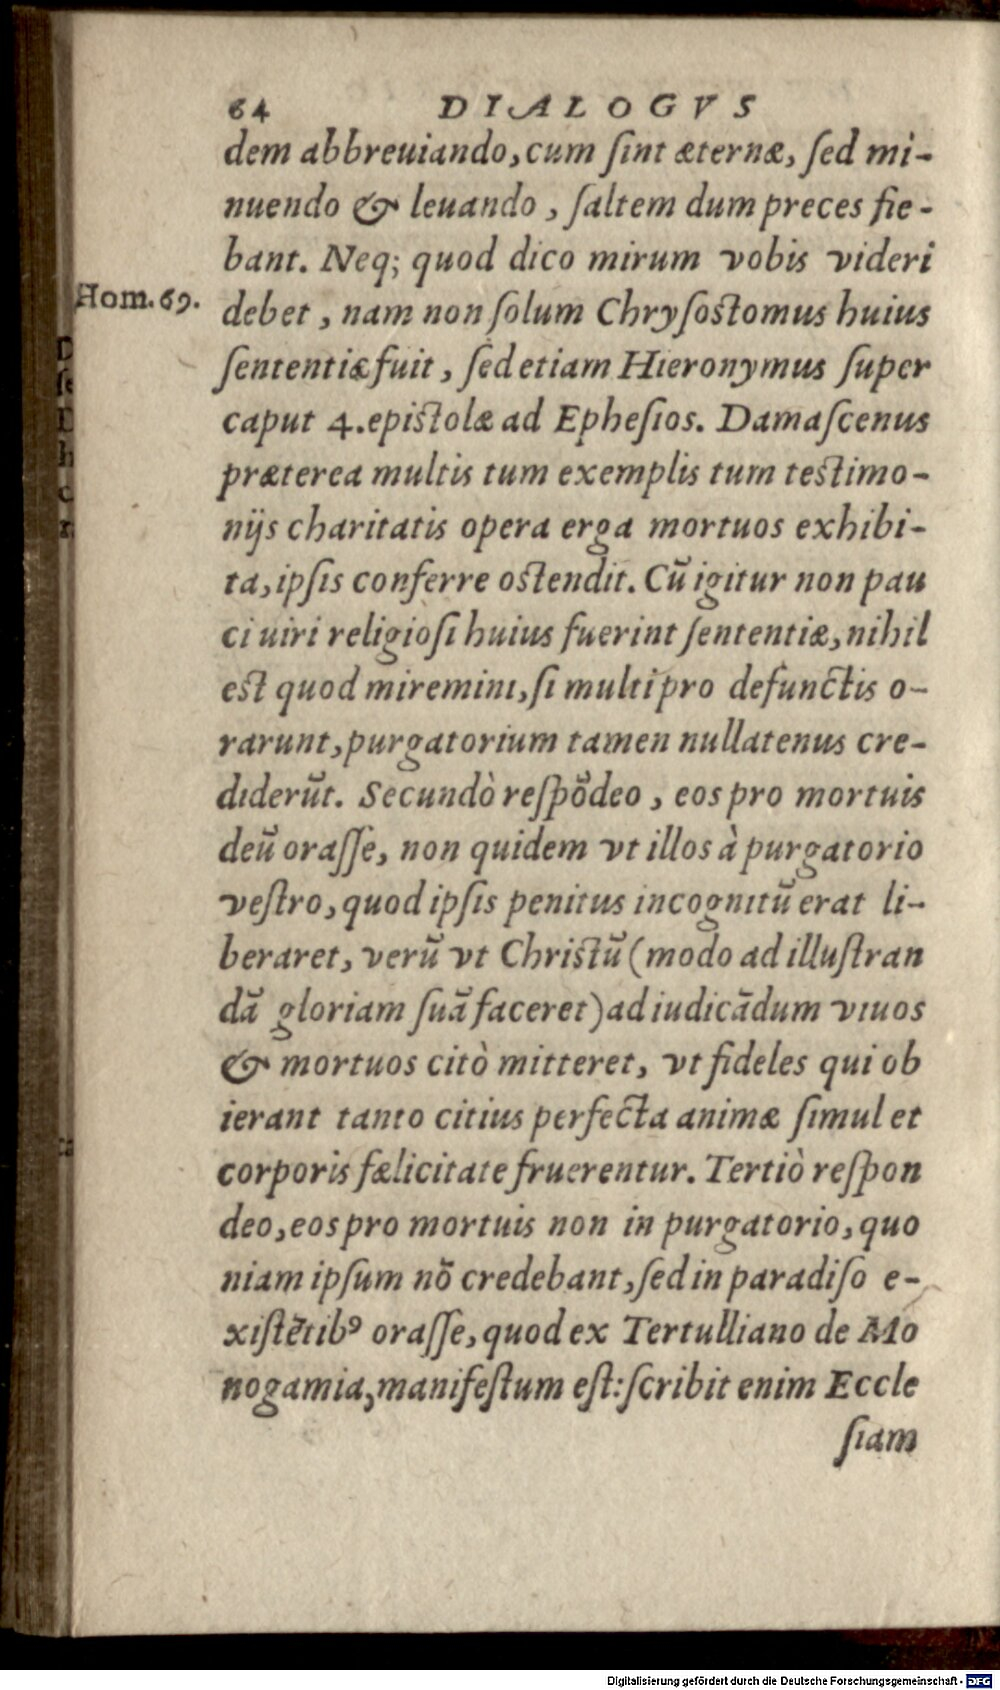 64 DIALOGVS
dem abbreuiando, cum ſint æternæ, ſed mi-
nuendo & leuando, ſaltem dum preces fie-
bant. Neq; quod dico mirum vobis videri
Hom. 69.
debet, nam non ſolum Chryſostomus huius
ſententiæ fuit, ſed etiam Hieronymus ſuper
caput 4. epistolæ ad Epheſios. Damaſcenus
præterea multis tum exemplis tum testimo-
nijs charitatis opera erga mortuos exhibi-
ta, ipſis conferre ostendit. Cū igitur non pau
ci uiri religioſi huius fuerint ſententiæ, nihil
est quod miremini, ſi multi pro defunctis o-
rarunt, purgatorium tamen nullatenus cre-
diderūt. Secundò reſpōdeo, eos pro mortuis
deū oraſſe, non quidem vt illos à purgatorio
veſtro, quod ipſis penitus incognitū erat li-
beraret, verū vt Christū (modo ad illuſtran
dā gloriam ſuā faceret) ad iudicādum viuos
& mortuos citò mitteret, vt fideles qui ob
ierant tanto citius perfecta animæ ſimul et
corporis fælicitate fruerentur. Tertiò reſpon
deo, eos pro mortuis non in purgatorio, quo
niam ipſum nō credebant, ſed in paradiſo e-
xiſtētibꝰ oraſſe, quod ex Tertulliano de Mo
nogamia, manifeſtum eſt: ſcribit enim Eccle
ſiam
Digitalisierung gefördert durch die Deutsche Forschungsgemeinschaft - DFG